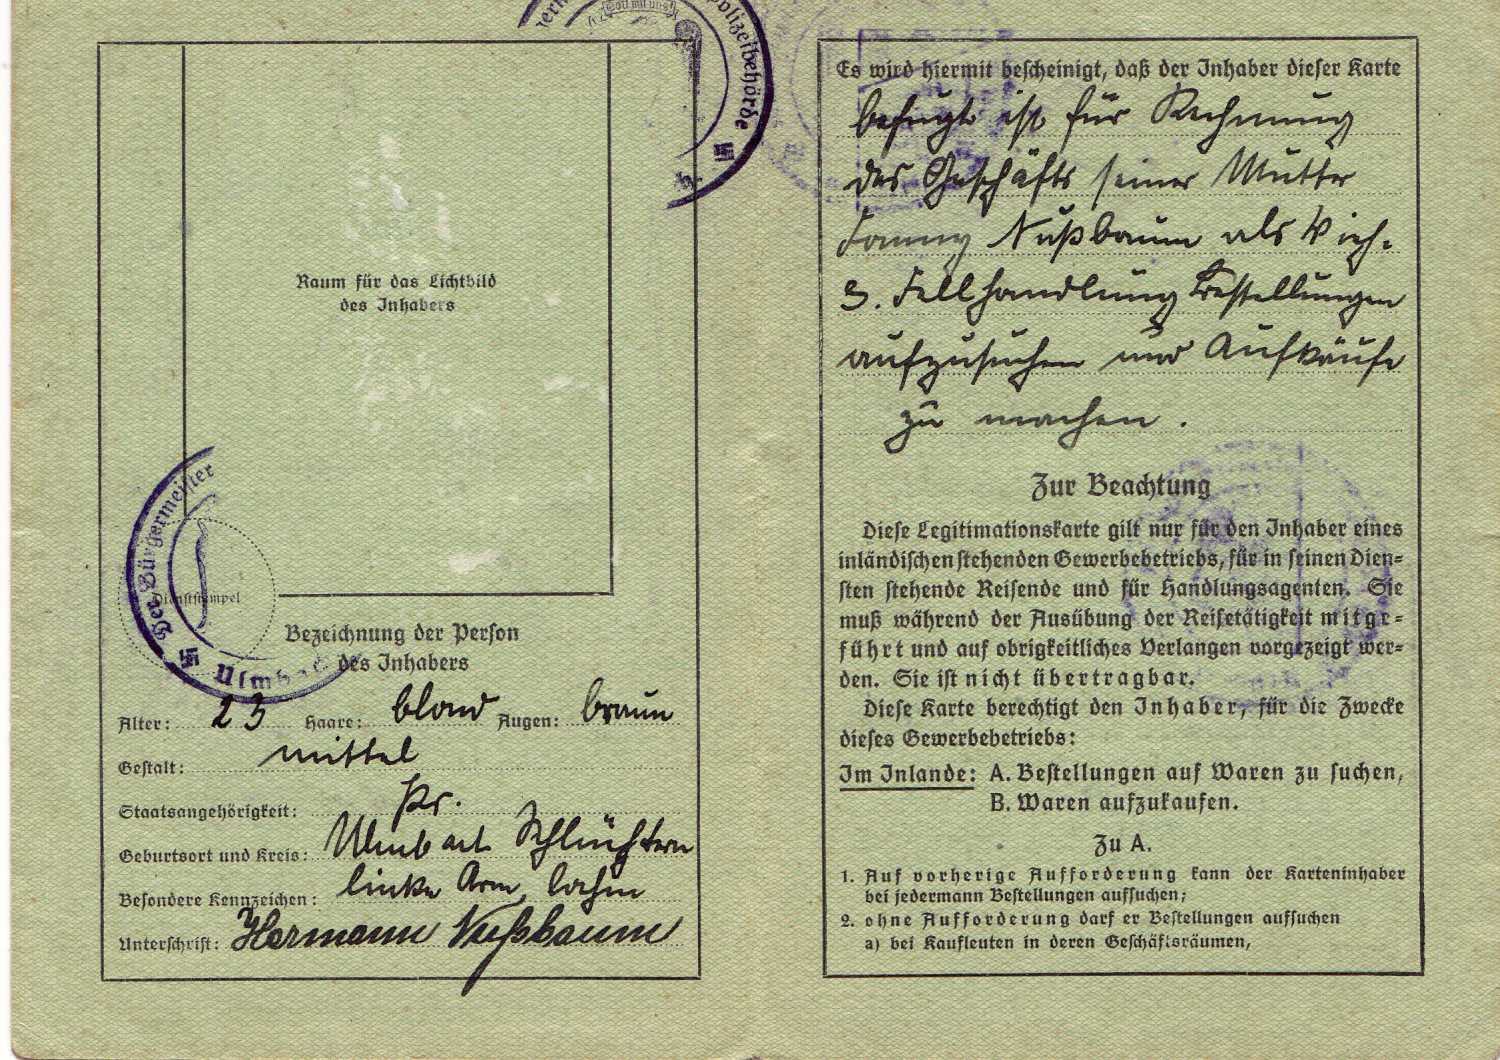 Gott mit uns
polizeibehörde
Raum für das Lichtbild
des Inhabers
Der Bürgermeister
Dienststempel
Bezeichnung der Person
des Inhabers
Alter: 23 Haare: blond Augen: braun
Gestalt: mittel
Staatsangehörigkeit: Pr.
Geburtsort und Kreis: Ulmbach Schlüchtern
Besondere Kennzeichen: linke Arm lahm
Unterschrift: Hermann Nußbaum
Es wird hiermit bescheinigt, daß der Inhaber dieser Karte
befugt ist für Rechnung
des Geschäfts seiner Mutter
Fanny Nußbaum als Vieh-
Fellhandlung Bestellungen
aufzusuchen und Aufkäufe
zu machen.
Zur Beachtung
Diese Legitimationskarte gilt nur für den Inhaber eines
inländischen stehenden Gewerbebetriebs, für in seinen Dien-
sten stehende Reisende und für Handlungsagenten. Sie
muß während der Ausübung der Reisetätigkeit mitge-
führt und auf obrigkeitliches Verlangen vorgezeigt wer-
den. Sie ist nicht übertragbar.
Diese Karte berechtigt den Inhaber, für die Zwecke
dieses Gewerbebetriebs:
Im Inlande: A. Bestellungen auf Waren zu suchen,
B. Waren aufzukaufen.
Zu A.
1. Auf vorherige Aufforderung kann der Karteninhaber
bei jedermann Bestellungen aufsuchen;
2. ohne Aufforderung darf er Bestellungen aufsuchen
a) bei Kaufleuten in deren Geschäftsräumen,